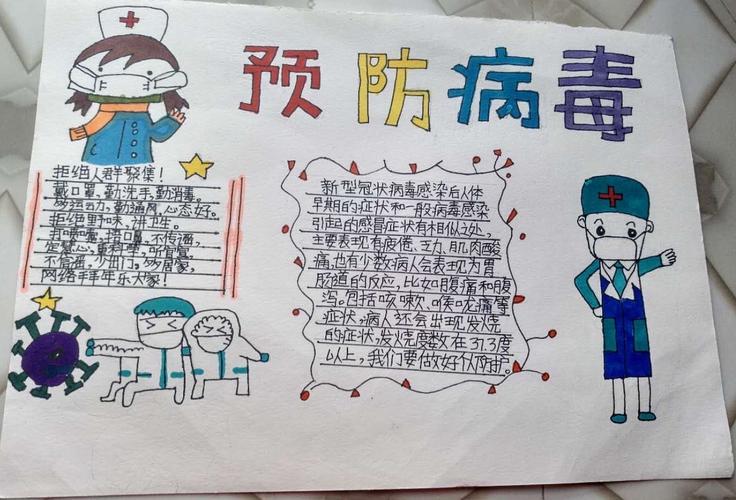 预防病毒
拒绝人群聚集！
戴口罩、勤洗手、勤消毒。
多运动、勤通风、心态好。
拒绝野味、讲卫生。
不信谣，少出门，
网络拜年乐大家！
新型冠状病毒感染后人体
早期的症状和一般病毒感染
引起的感冒症状有相似之处，
主要表现有疲倦、乏力、肌肉酸
痛，也有少数病人会表现为胃
肠道的反应，比如腹痛和腹
泻，包括咳嗽、喉咙痛等
症状，病人还会出现发烧
的症状，发烧度数在37.3度
以上，我们要做好防护。